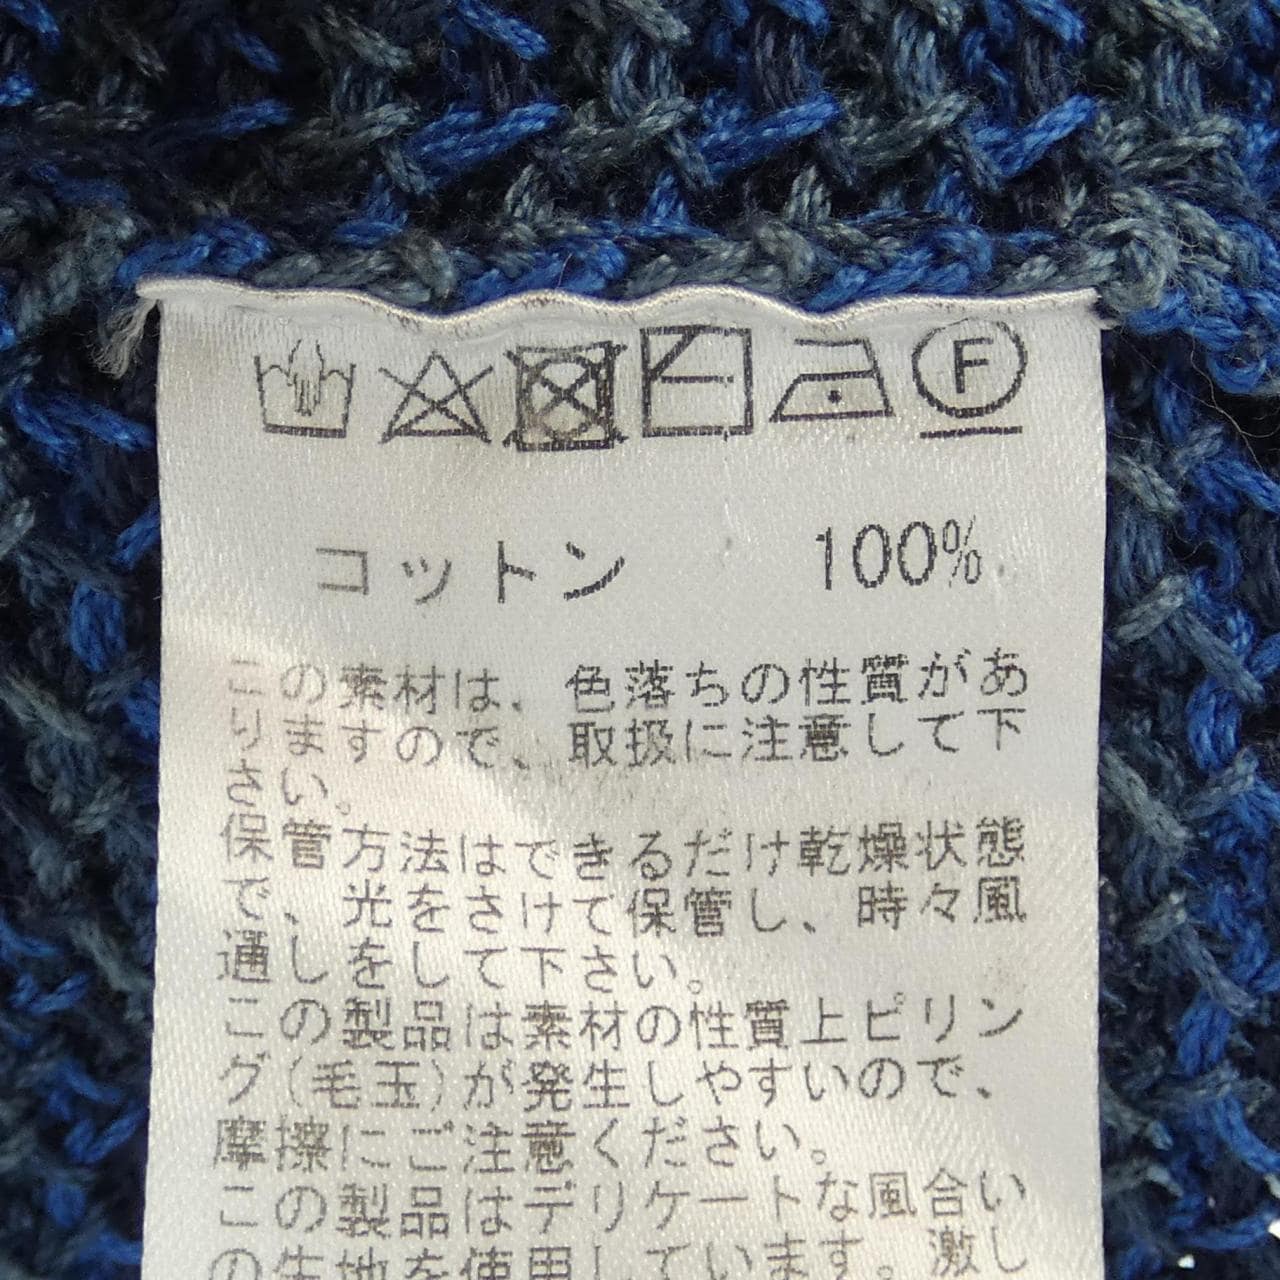 F
コットン 100%
この素材は、色落ちの性質があ
りますので、取扱に注意して下
さい。
保管方法はできるだけ乾燥状態
で、光をさけて保管し、時々風
通しをして下さい。
この製品は素材の性質上ピリン
グ(毛玉)が発生しやすいので、
摩擦にご注意ください。
この製品はデリケートな風合い
の生地を使用しています。激し